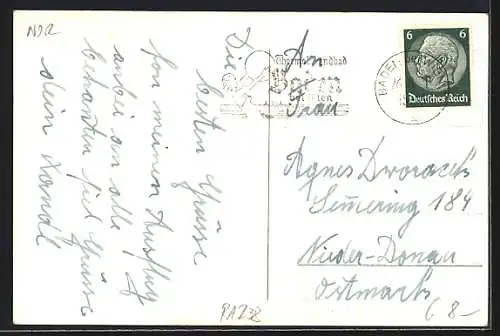 NDR
Die besten Grüsse
von meinen Ausflug
anbei an alle
bekannten
Grüsse
dein
Thermal Strandbad
Baden
bei Wien
BADEN
6 6
Deutsches Reich
An
Frau
Agnes Dworacek
Semering 184
Nieder-Donau
Ostmark
PAZ32
8-